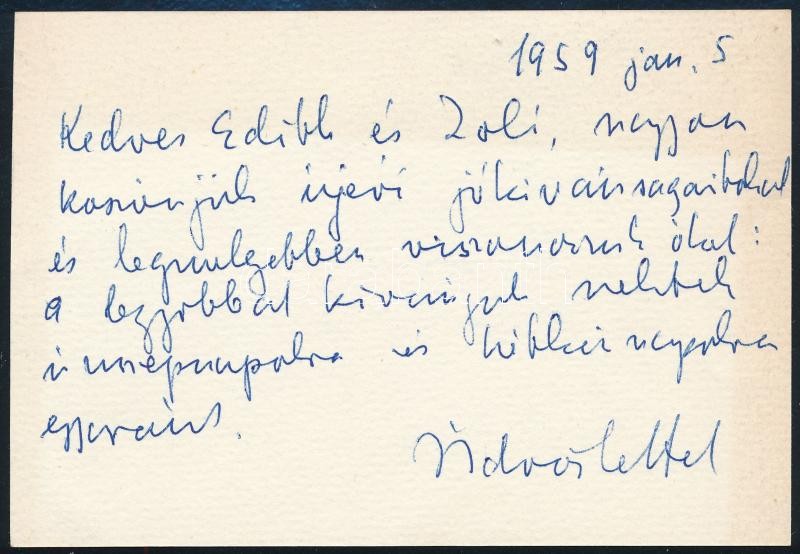 1959 jan. 5
Kedves Edith és Zoli, nagyon
köszönjük újévi jókivánságaitokat
és legmelegebben viszonozzuk őket:
a legjobbat kivánjuk nektek
ünnepnapokra és hétköznapokra
egyaránt.
Üdvözlettel